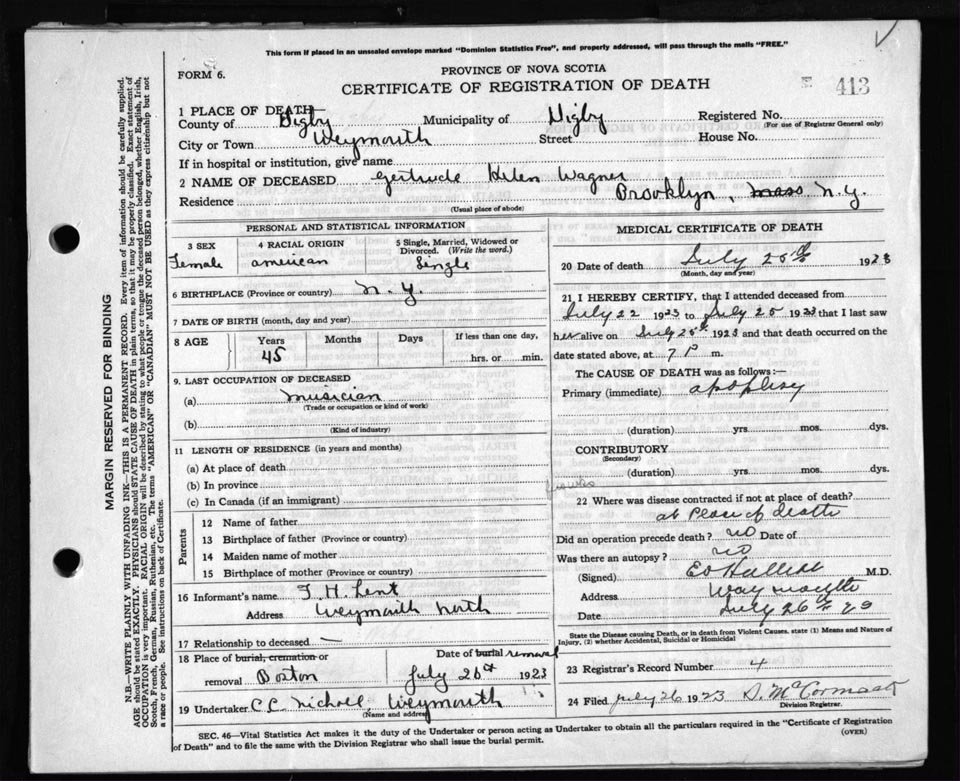 This form if placed in an unsealed envelope marked "Dominion Statistics Free", and properly addressed, will pass through the mails "FREE."
FORM 6.
PROVINCE OF NOVA SCOTIA
CERTIFICATE OF REGISTRATION OF DEATH
413
1 PLACE OF DEATH—
County of Digby Municipality of Digby Registered No.
(For use of Registrar General only)
City or Town Weymouth Street House No.
If in hospital or institution, give name
2 NAME OF DECEASED Gertrude Helen Wagner
Residence Brooklyn, Mass N.Y.
(Usual place of abode)
PERSONAL AND STATISTICAL INFORMATION
3 SEX
Female
4 RACIAL ORIGIN
american
5 Single, Married, Widowed or Divorced. (Write the word.)
Single
6 BIRTHPLACE (Province or country) N.Y.
7 DATE OF BIRTH (month, day and year)
8 AGE Years Months Days If less than one day,
45 hrs. or min.
9. LAST OCCUPATION OF DECEASED
(a) musician
(Trade or occupation or kind of work)
(b)
(Kind of industry)
11 LENGTH OF RESIDENCE (in years and months)
(a) At place of death
(b) In province
(c) In Canada (if an immigrant)
Parents
12 Name of father
13 Birthplace of father (Province or country)
14 Maiden name of mother
15 Birthplace of mother (Province or country)
16 Informant's name T. H. Lent
Address Weymouth North
17 Relationship to deceased —
18 Place of burial, cremation or removal Boston
Date of burial removal
July 26th 1923
19 Undertaker C.C. Nicholl Weymouth
(Name and address)
MEDICAL CERTIFICATE OF DEATH
20 Date of death July 25th 1923
(Month, day and year)
21 I HEREBY CERTIFY, that I attended deceased from
July 22 1923 to July 25 1923 that I last saw
her alive on July 25th 1923 and that death occurred on the
date stated above, at 7 P m.
The CAUSE OF DEATH was as follows:—
Primary (immediate) apoplexy
(duration) yrs. mos. dys.
CONTRIBUTORY
(Secondary)
(duration) yrs. mos. dys.
22 Where was disease contracted if not at place of death?
at Place of death
Did an operation precede death? no Date of
Was there an autopsy? no
(Signed) M.D.
Address Waymouth
Date July 26th 23
State the Disease causing Death, or in death from Violent Causes, state (1) Means and Nature of Injury, (2) whether Accidental, Suicidal or Homicidal
23 Registrar's Record Number 4
24 Filed July 26 1923 D. McCormack
Division Registrar.
SEC. 46—Vital Statistics Act makes it the duty of the Undertaker or person acting as Undertaker to obtain all the particulars required in the "Certificate of Registration of Death" and to file the same with the Division Registrar who shall issue the burial permit.
(OVER)
MARGIN RESERVED FOR BINDING
N.B.—WRITE PLAINLY WITH UNFADING INK—THIS IS A PERMANENT RECORD. Every item of information should be carefully supplied.
AGE should be stated EXACTLY. PHYSICIANS should STATE CAUSE OF DEATH in plain terms, so that it may be properly classified. Exact statement of
OCCUPATION is very important. RACIAL ORIGIN will be described by stating to what people or tongue the deceased person belonged, whether English, Irish,
Scotch, French, German, Russian, Ruthenian, etc. The terms "AMERICAN" OR "CANADIAN" MUST NOT BE USED as they express citizenship but not
a race or people. See instructions on back of Certificate.